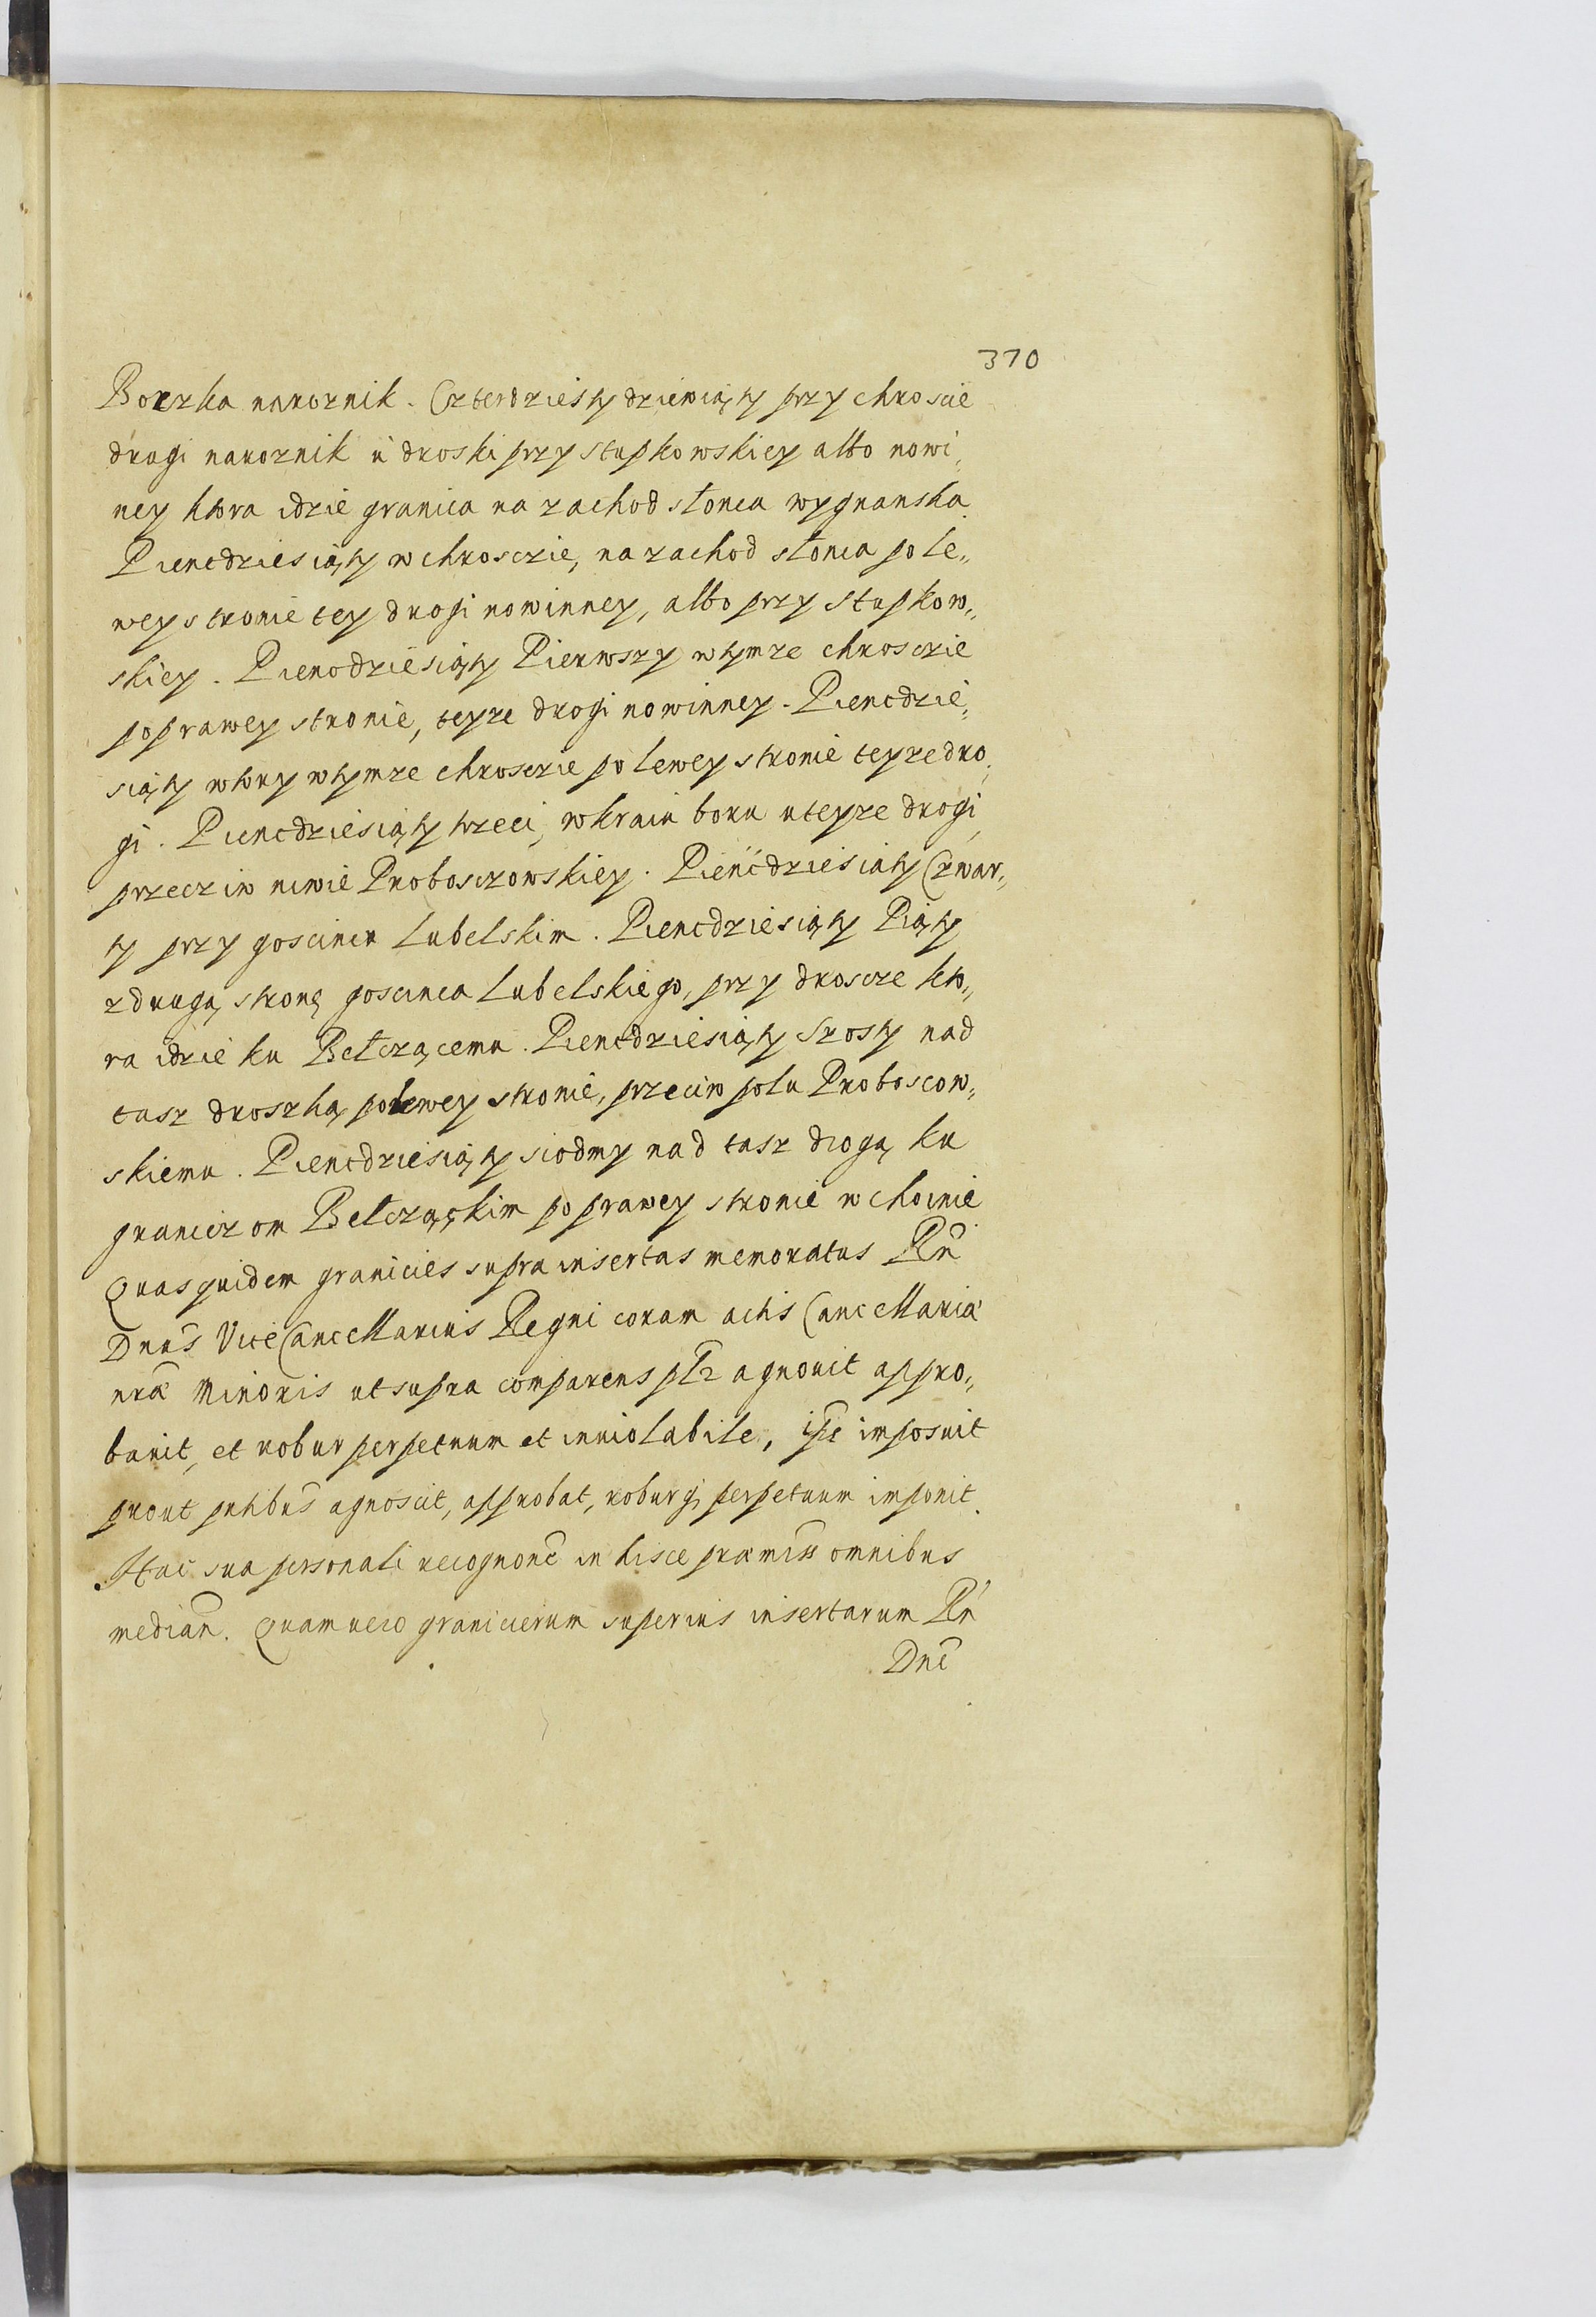 370
Borzka naroznik. Czterdziesty dziewiąty przy chroscie
drugi naroznik u droski przy stupkowskiey albo nowi„
ney ktora idzie granica na zachod słonca wygnanska
Piencdziesiąty w chrosczie, na zachod słonca po le„
wey stronie tey drogi nowinney, albo przy Stupkow„
skiey. Piencdziesiąty Pierwszy w tymze chrosczie
po prawey stronie, teyze drogi nowinney. Piencdzie„
siąty wtory w tymze chrosczie po lewey stronie teyze dro„
gi. Piencdziesiąty trzeci, w kraiu boru u teyze drogi
przecziw niwie Proboszczowskiey. Pięncdziesiąty Czwar„
ty przy goscincu Lubelskim. Piencdziesiąty Piąty
z drugą stronę goscinca Lubelskiego, przy droscze kto„
ra idzie ku Bełcząćemu. Piencdziesiąty Szosty nad
tasz droszką po lewey stronie, przeciw polu Proboscow„
skiemu. Piencdziesiąty siodmy nad tasz drogą ku
graniczom Bełcząckim po prawey stronie w choinie
Quas quidem granicies supra insertas memoratus Rñ
Dnũs Vice Cancellarius Regni coram actis Cancellariæ
nræ Minoris ut supra comparens plr agnouit appro„
bauit, et robur perpetuum et inuiolabile, ipse imposuit
prout pntibus agnoscit, approbat, roburq, perpetuum imponit.
Hac sua personali recognone in hisce præmiss omnibus
median. Quam uero granicierum superius insertarum Rñ
Dnĩ